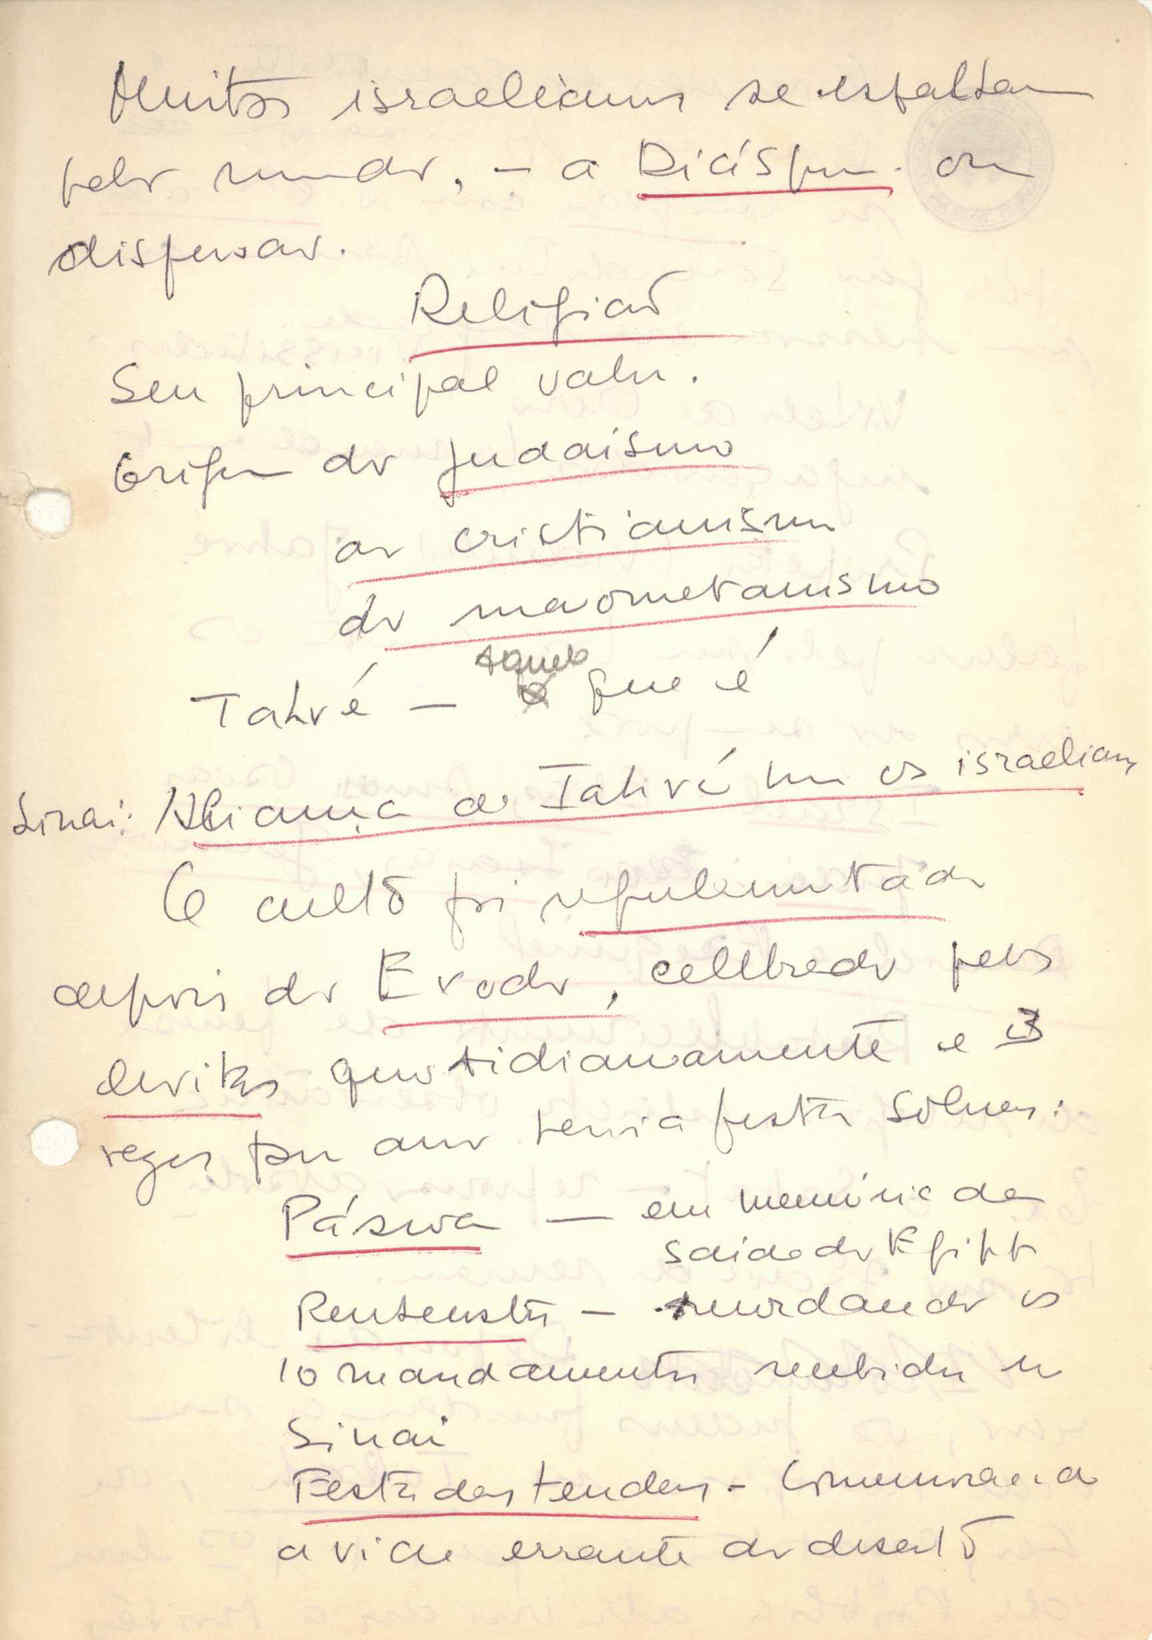 Muitos israelianos se espalham
pelo mundo, - a Diáspora ou
dispersão.
Religião
Seu principal valor.
Origem do judaismo
do cristianismo
do maometanismo
Iahvé - aquele que é
Sinai: Aliança de Iahvé com os israelianos
O culto foi regulamentado
depois do Exodo, celebrado pelos
levitas quotidianamente e 3
vezes por ano havia festas solenes:
Páscoa - em memória da
saida do Egipto
Pentecostes - recordando os
10 mandamentos recebidos no
Sinai
Festa das tendas - Comemorando
a vida errante do deserto